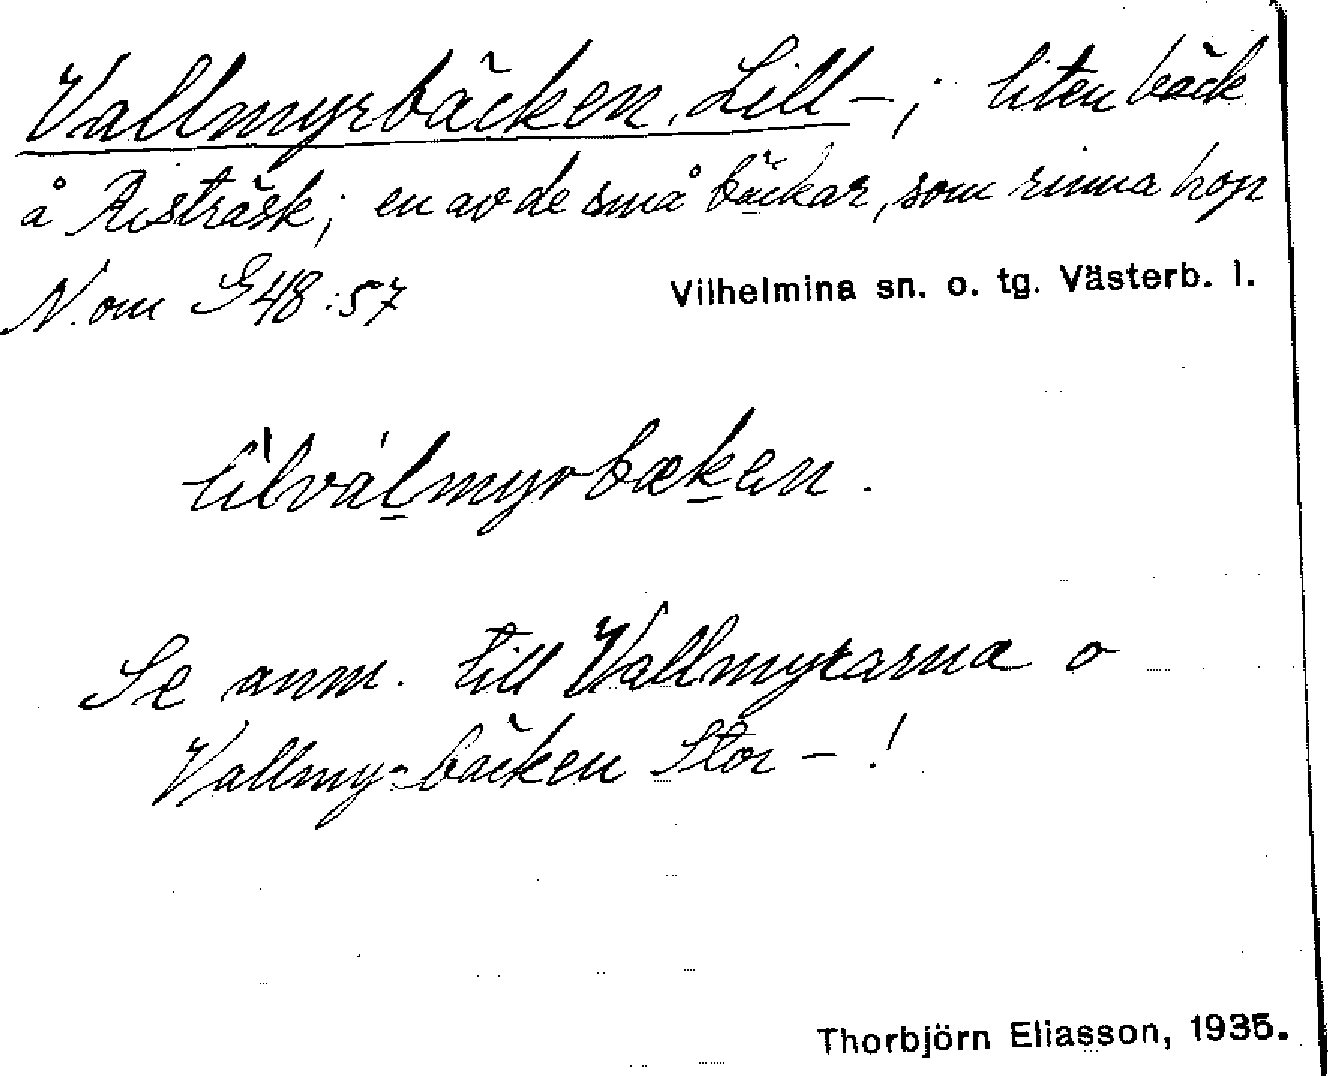 Vallmyrbäcken, Lill- ; liten bäck
å Risträsk; en av de små bäckar, som rinna hop
N. om G48:57 Vilhelmina sn. o. tg. Västerb. l.
lìlválmyrbækan.
Se anm. till Vallmyrarna o
Vallmyrbäcken Stor - !
Thorbjörn Eliasson, 1935.